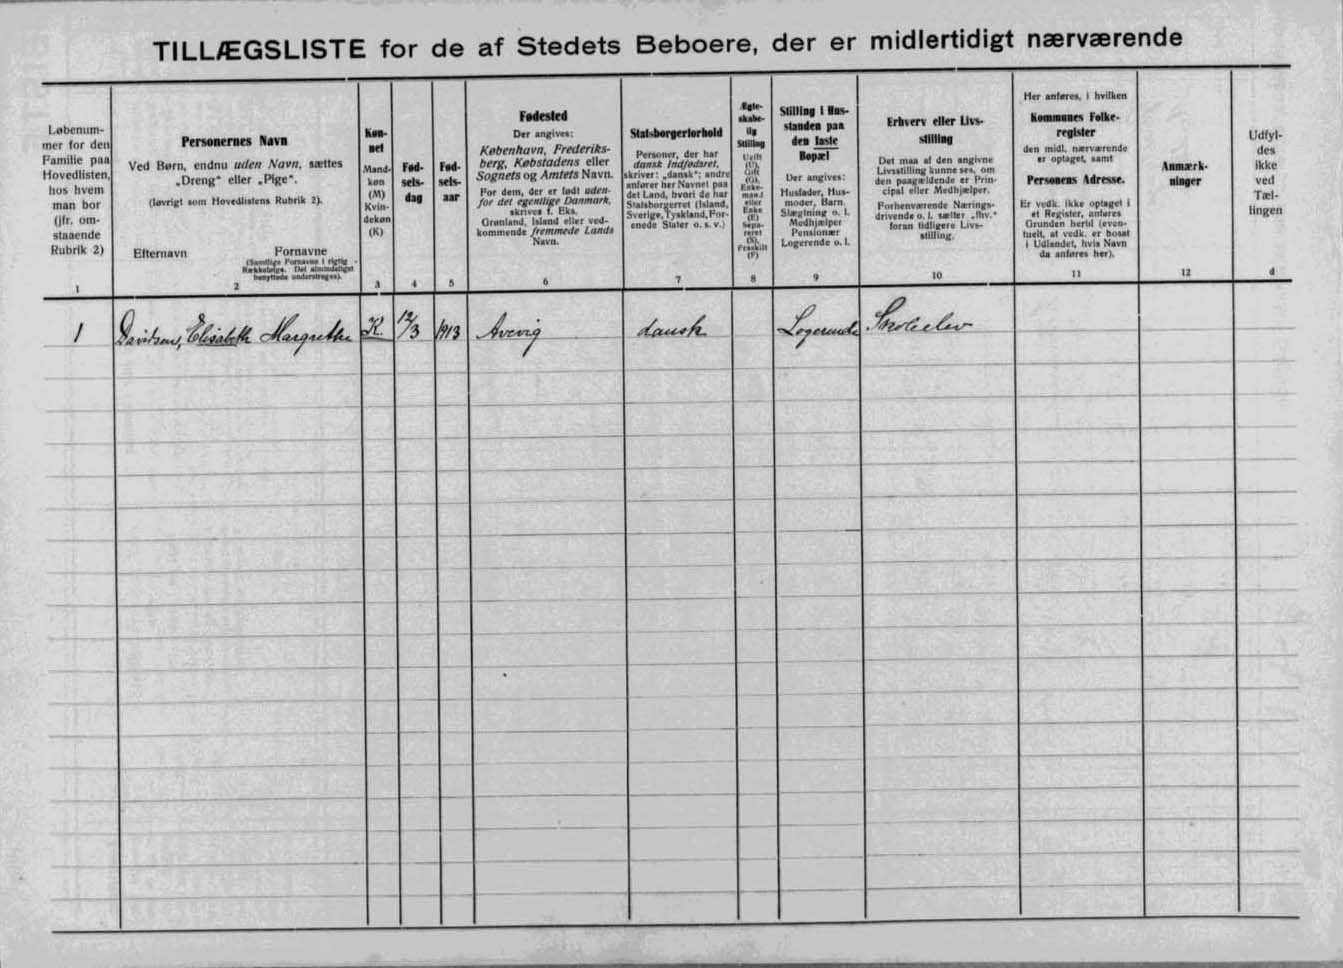 TILLÆGSLISTE for de af Stedets Beboere, der er midlertidigt nærværende
Løbenum-
mer for den
Familie paa
Hovedlisten,
hos hvem
man bor
(jfr. om-
staaende
Rubrik 2)
1
Personernes Navn
Ved Børn, endnu uden Navn, sættes
„Dreng“ eller „Pige“.
(Iøvrigt som Hovedlistens Rubrik 2).
Efternavn Fornavne
(Samtlige Fornavne i rigtig
Rækkefølge. Det almindeligst
benyttede understreges).
2
Køn-
net
Mand-
køn
(M)
Kvin-
dekøn
(K)
3
Fød-
sels-
dag
4
Fød-
sels-
aar
5
Fødested
Der angives:
København, Frederiks-
berg, Købstadens eller
Sognets og Amtets Navn.
For dem, der er født uden-
for det egentlige Danmark,
skrives f. Eks.
Grønland, Island eller ved-
kommende fremmede Lands
Navn.
6
Statsborgerforhold
Personer, der har
dansk Indfødsret,
skriver: „dansk“; andre
anfører her Navnet paa
det Land, hvori de har
Statsborgerret (Island,
Sverige, Tyskland, For-
enede Stater o. s. v.)
7
Ægte-
skabe-
lig
Stilling
Ugift
(U),
Gift
(G),
Enke-
mand
eller
Enke
(E)
Sepa-
reret
(S),
Fraskilt
(F)
8
Stilling i Hus-
standen paa
den faste
Bopæl
Der angives:
Husfader, Hus-
moder, Barn,
Slægtning o. l.
Medhjælper
Pensionær
Logerende o. l.
9
Erhverv eller Livs-
stilling
Det maa af den angivne
Livsstilling kunne ses, om
den paagældende er Prin-
cipal eller Medhjælper.
Forhenværende Nærings-
drivende o. l. sætter „fhv.“
foran tidligere Livs-
stilling.
10
Her anføres, i hvilken
Kommunes Folke-
register
den midl. nærværende
er optaget, samt
Personens Adresse.
Er vedk. ikke optaget i
et Register, anføres
Grunden hertil (even-
tuelt, at vedk. er bosat
i Udlandet, hvis Navn
da anføres her).
11
Anmærk-
ninger
12
Udfyl-
des
ikke
ved
Tæl-
lingen
d
1 Davidsen, Elisabeth Margrethe K 12/3 1913 Avevig dansk Logerende Skoleelev